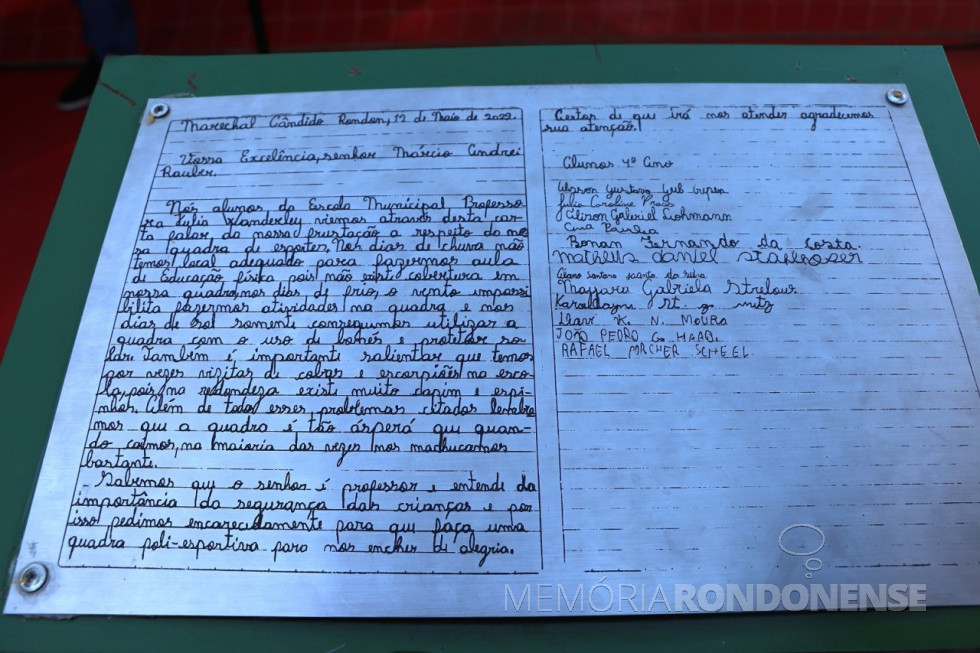 Marechal Cândido Rondon, 12 de Maio de 2022.
Vossa Excelência, senhor Márcio Andrei
Rauber.
Nós alunos da Escola Municipal Professo-
ra Lylia Wanderley viemos através desta car-
ta falar da nossa frustação a respeito da nos
sa quadra de esportes. Nos dias de chuva não
temos local adequado para fazermos aula
de Educação física pois não existe cobertura em
nossa quadra, nos dias de frio, o vento impossi
bilita fazermos atividades na quadra e nos
dias de sol somente conseguimos utilizar a
quadra com o uso de bonés e protetor so-
lar. Também é importante salientar que temos
por vezes vizitas de cobras e escorpiões na esco-
la, pois na redondeza existe muito capim e espi-
nhos. Além de todos esses problemas citados lembra
mos que a quadra é tão ásperá que quan-
do caímos, na maioria das vezes nos machucamos
bastante.
Sabemos que o senhor é professor e entende da
importância da segurança das crianças e por
isso pedimos encarecidamente para que faça uma
quadra poli-esportiva para nos encher de alegria.
Certos de que irá nos atender agradecemos
sua atenção!
Alunos 4º Ano
Gustavo
Julia Caroline
Gabriel Lohmann
Ronan Fernando da Costa.
matheus daniel
dos santos da silva
Mayara Gabriela Strelow
K. N. MOURA
JOÃO PEDRO G. HAAD.
RAFAEL MACHER SCHEEL
MEMÓRIARONDONENSE